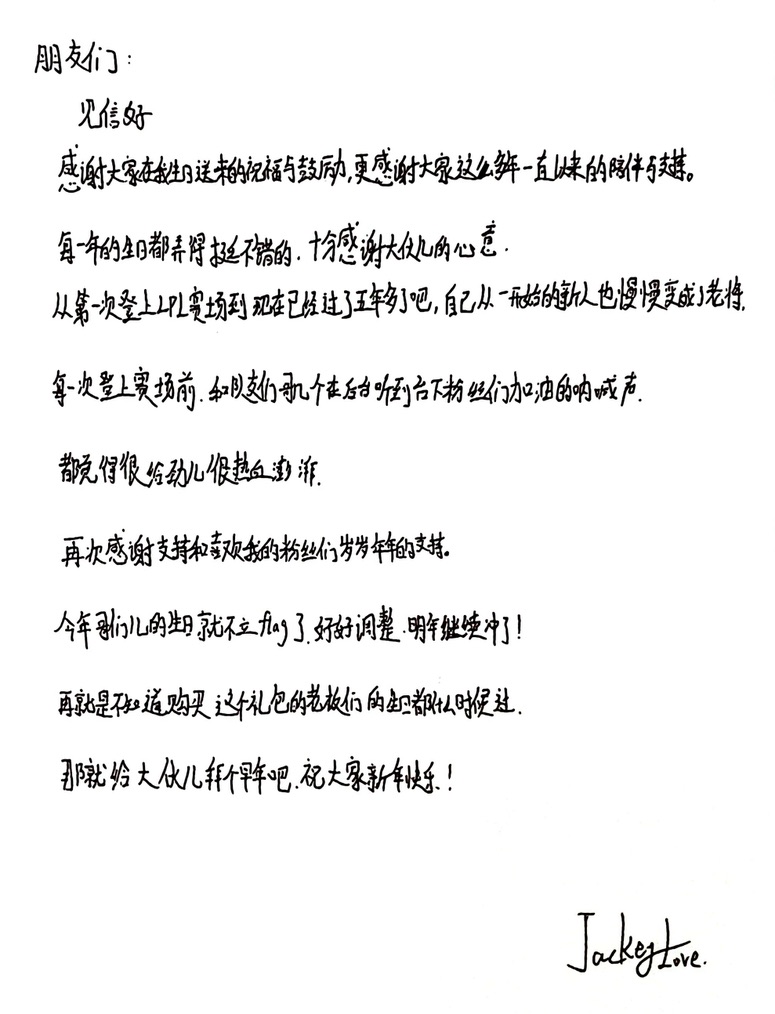 朋友们：
见信好
感谢大家在我生日送来的祝福与鼓励，更感谢大家这么多年一直以来的陪伴与支持。
每一年的生日都弄得挺不错的，十分感谢大伙儿的心意.
从第一次登上LPL赛场到现在已经过了五年多了吧，自己从一开始的新人也慢慢变成了老将，
每一次登上赛场前，和队友们哥几个在后台听到台下粉丝们加油的呐喊声.
都觉得很给劲儿很热血澎湃.
再次感谢支持和喜欢我的粉丝们岁岁年年的支持。
今年哥们儿的生日就不立flag了，好好调整，明年继续冲了！
再就是不知道购买这个礼包的老板们的生日都什么时候过.
那就给大伙儿拜个早年吧，祝大家新年快乐！
JackeyLove.